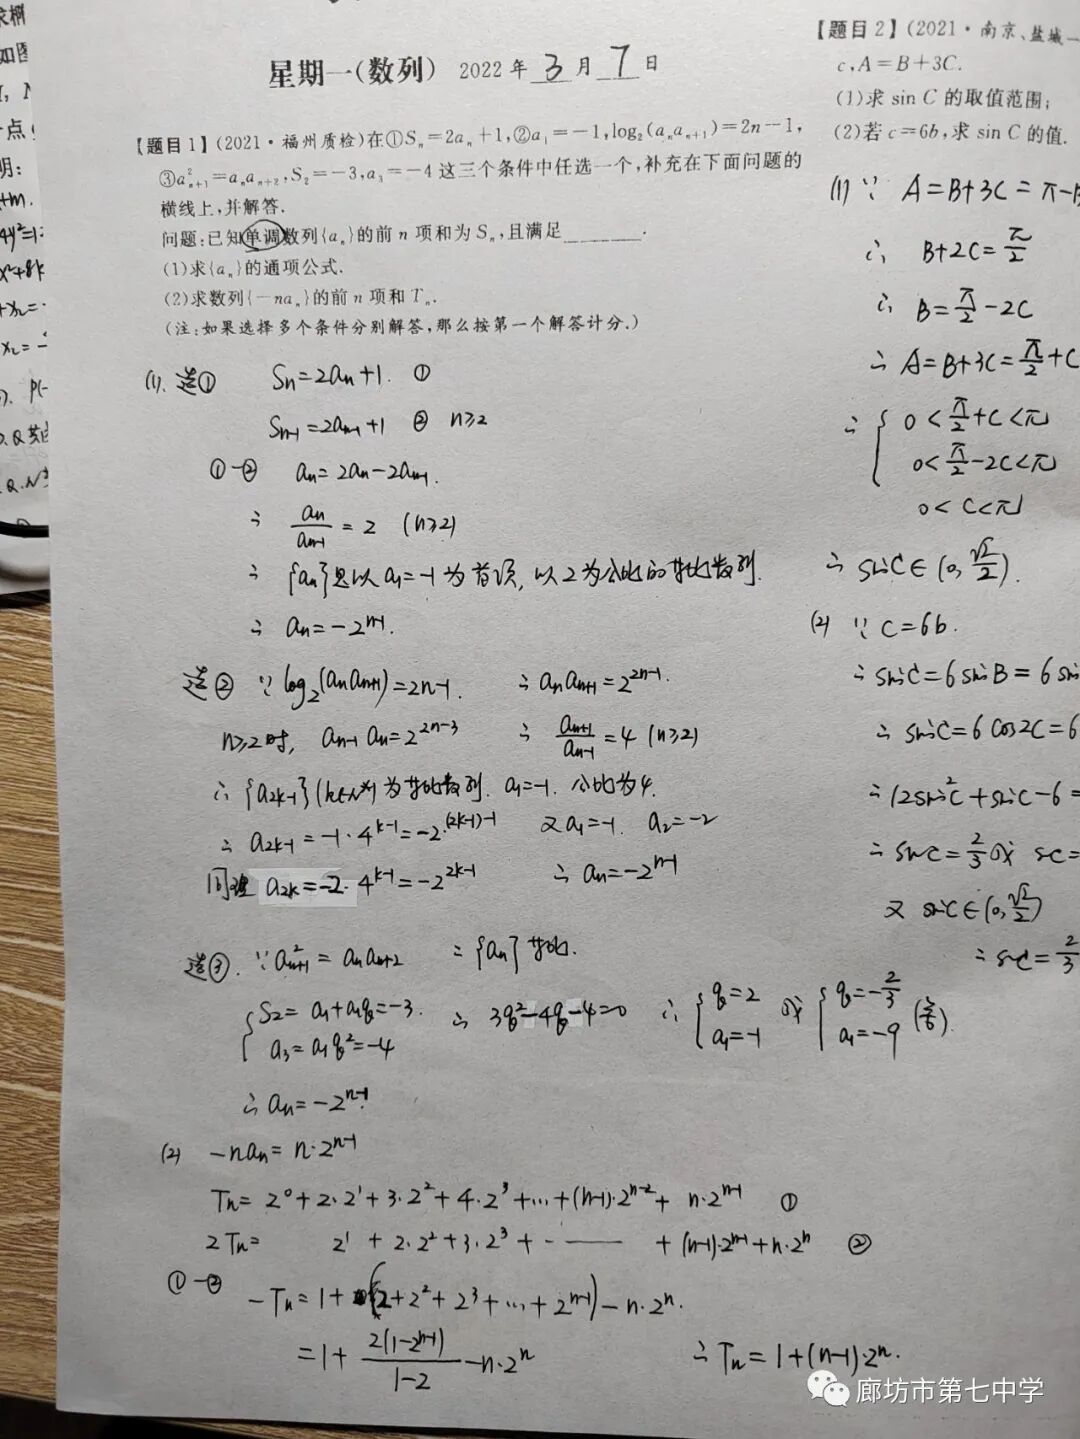 星期一(数列) 2022年3月7日
【题目1】(2021·福州质检)在①Sₙ=2aₙ+1,②a₁=-1,log₂(aₙaₙ₊₁)=2n-1,
③a²ₙ₊₁=aₙaₙ₊₂,S₂=-3,a₃=-4这三个条件中任选一个,补充在下面问题的
横线上,并解答.
问题:已知单调数列{aₙ}的前n项和为Sₙ,且满足________.
(1)求{aₙ}的通项公式.
(2)求数列{-naₙ}的前n项和Tₙ.
(注:如果选择多个条件分别解答,那么按第一个解答计分.)
(1). 选① Sₙ=2aₙ+1. ①
Sₙ₋₁=2aₙ₋₁+1 ② n≥2
①-② aₙ=2aₙ-2aₙ₋₁.
∴ aₙ/aₙ₋₁=2 (n≥2)
∴ {aₙ}是以a₁=-1为首项,以2为公比的等比数列.
∴ aₙ=-2ⁿ⁻¹.
选② ∵log₂(aₙaₙ₊₁)=2n-1. ∴aₙaₙ₊₁=2²ⁿ⁻¹.
n≥2时, aₙ₋₁aₙ=2²ⁿ⁻³ ∴ aₙ₊₁/aₙ₋₁=4 (n≥2)
∴{a₂ₖ₋₁}(k∈N*)为等比数列. a₁=-1. 公比为4.
∴a₂ₖ₋₁=-1·4ᵏ⁻¹=-2^((2k-1)-1) 又a₁=-1. a₂=-2
同理 a₂ₖ=-2·4ᵏ⁻¹=-2²ᵏ⁻¹ ∴aₙ=-2ⁿ⁻¹
选③. ∵a²ₙ₊₁=aₙaₙ₊₂ ∴{aₙ}等比.
{S₂=a₁+a₁q=-3. ∴ 3q²-4q-4=0 ∴ {q=2 或 {q=-2/3 (舍).
a₃=a₁q²=-4 a₁=-1 a₁=-9
∴aₙ=-2ⁿ⁻¹.
(2) -naₙ=n·2ⁿ⁻¹
Tₙ=2⁰+2·2¹+3·2²+4·2³+…+(n-1)·2ⁿ⁻²+n·2ⁿ⁻¹ ①
2Tₙ= 2¹+2·2²+3·2³+……+(n-1)·2ⁿ⁻¹+n·2ⁿ ②
①-② -Tₙ=1+(2+2²+2³+…+2ⁿ⁻¹)-n·2ⁿ.
=1+2(1-2ⁿ⁻¹)/(1-2)-n·2ⁿ ∴Tₙ=1+(n-1)·2ⁿ.
【题目2】(2021·南京、盐城一
c,A=B+3C.
(1)求sin C的取值范围;
(2)若c=6b,求sin C的值.
(1) ∵ A=B+3C=π-B
∴ B+2C=π/2
∴ B=π/2-2C
∴A=B+3C=π/2+C
∴{0<π/2+C<π
0<π/2-2C<π
0<C<π
∴ sinC∈(0,√2/2).
(2) ∵ c=6b.
∴sinC=6sinB=6sin
∴ sinC=6cos2C=6
∴12sin²C+sinC-6=
∴sinC=2/3或 sinC=
又 sinC∈(0,√2/2)
∴sinC=2/3
廊坊市第七中学
求椭
如图
点
明:
+m.
4y²=1
x²+8k
+x₂=-
x₂=-
P(-